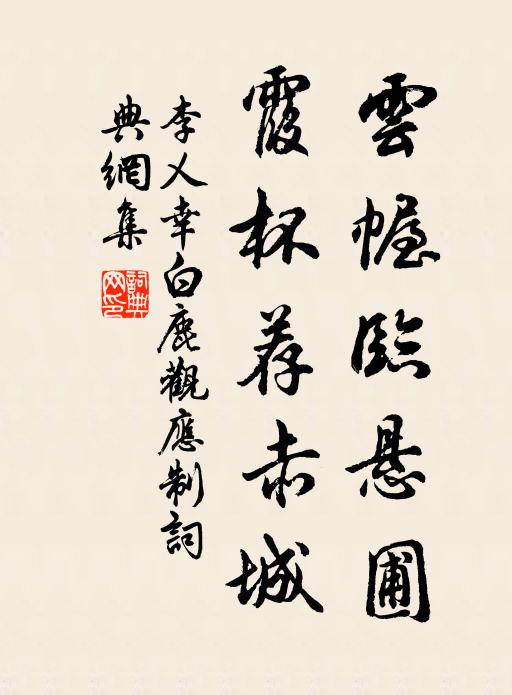 雲幄臨悬圃
霞杯荐赤城
李乂幸白鹿觀應制詞
典網集
詞典
网印